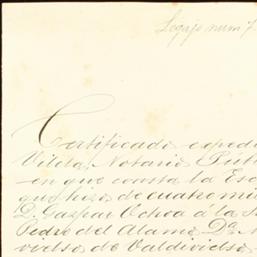 Legajo num 7
Certificado expedi
Vileta, Notario Púb
en que consta la Esc
que hizo de cuatro mil
D. Gaspar Ochoa á la S
Pedro del Alamo Dª. M
de Valdivielso